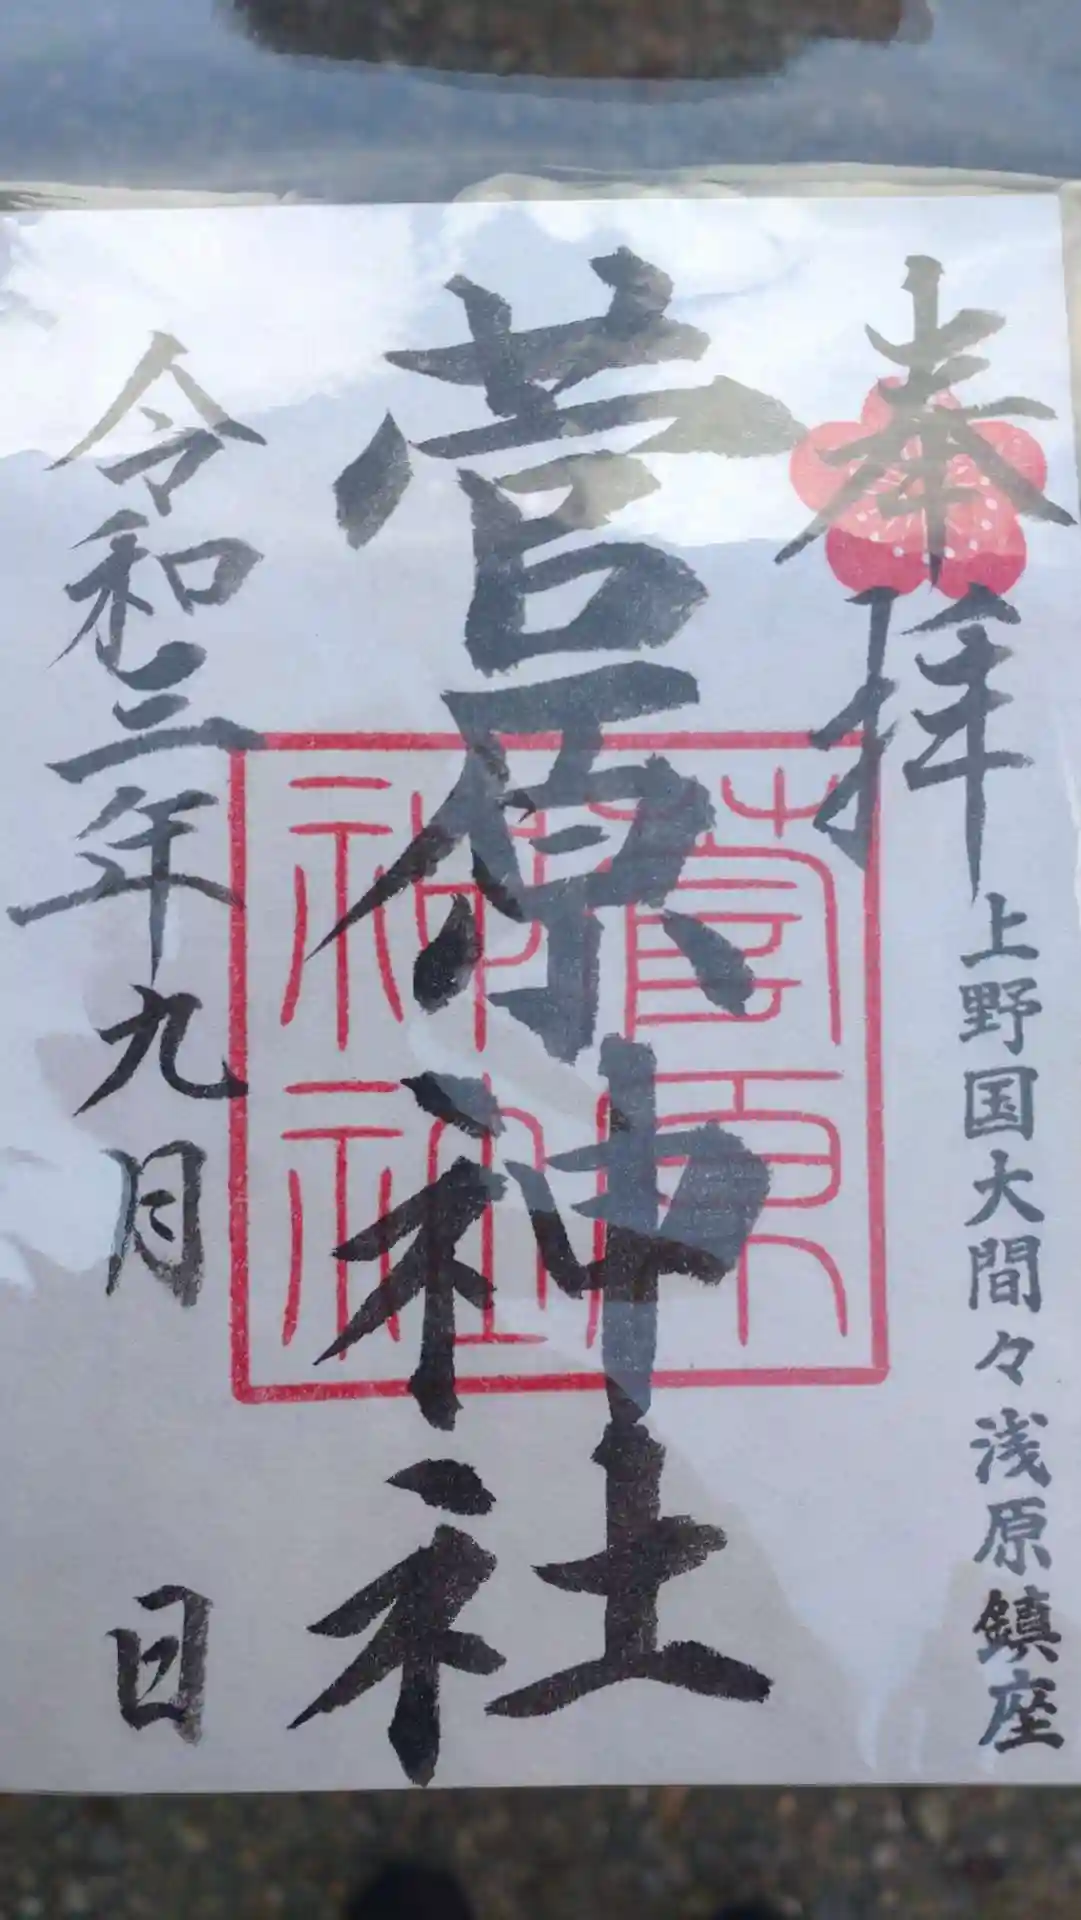 奉拝
上野国大間々浅原鎮座
菅原神社
菅原
神社
令和三年九月 日